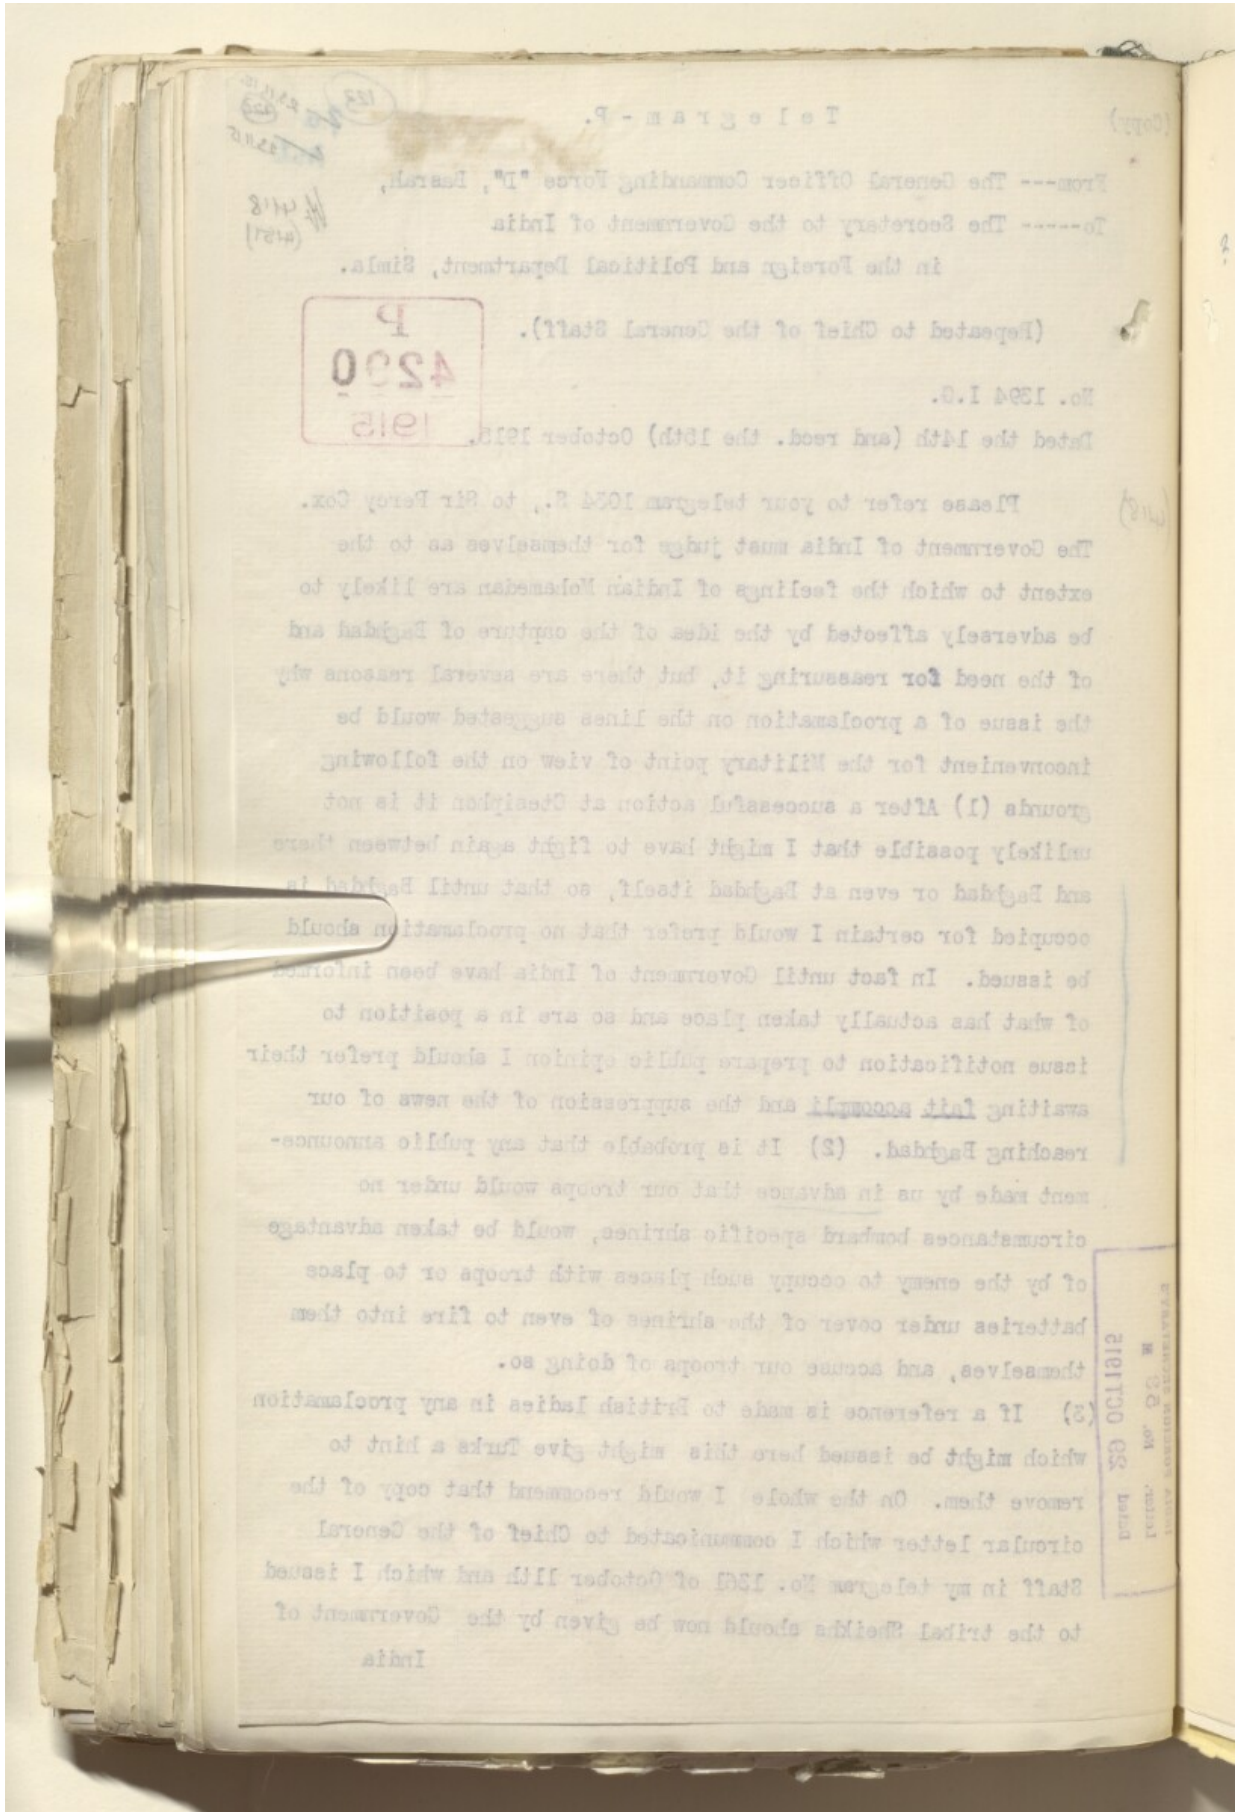 (Copy)
Telegram-P.
From--- The General Officer Commanding Force "D", Basrah,
To----- The Secretary to the Government of India
in the Foreign and Political Department, Simla.
(Repeated to Chief of the General Staff).
P
4290
1915
No. 1394 I.G.
Dated the 14th (and recd. the 15th) October 1915.
Please refer to your telegram 1034 S., to Sir Percy Cox.
The Government of India must judge for themselves as to the
extent to which the feelings of Indian Mohamedan are likely to
be adversely affected by the idea of the capture of Baghdad and
of the need for reassuring it, but there are several reasons why
the issue of a proclamation on the lines suggested would be
inconvenient for the Military point of view on the following
grounds (1) After a successful action at Ctesiphon it is not
unlikely possible that I might have to fight again between there
and Baghdad or even at Baghdad itself, so that until Baghdad is
occupied for certain I would prefer that no proclamation should
be issued. In fact until Government of India have been informed
of what has actually taken place and so are in a position to
issue notification to prepare public opinion I should prefer their
awaiting fait accompli and the suppression of the news of our
reaching Baghdad. (2) It is probable that any public announce-
ment made by us in advance that our troops would under no
circumstances bombard specific shrines, would be taken advantage
of by the enemy to occupy such places with troops or to place
batteries under cover of the shrines of even to fire into them
themselves, and accuse our troops of doing so.
(3) If a reference is made to British ladies in any proclamation
which might be issued here this might give Turks a hint to
remove them. On the whole I would recommend that copy of the
circular letter which I communicated to Chief of the General
Staff in my telegram No. 1361 of October 11th and which I issued
to the tribal Sheikhs should now be given by the Government of
India
INDIA FOREIGN SECRETARY'S
Letter. No. 53 M
Dated 29 OCT 1915